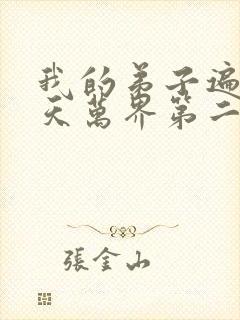 我的弟子遍
天萬界第二
張金山